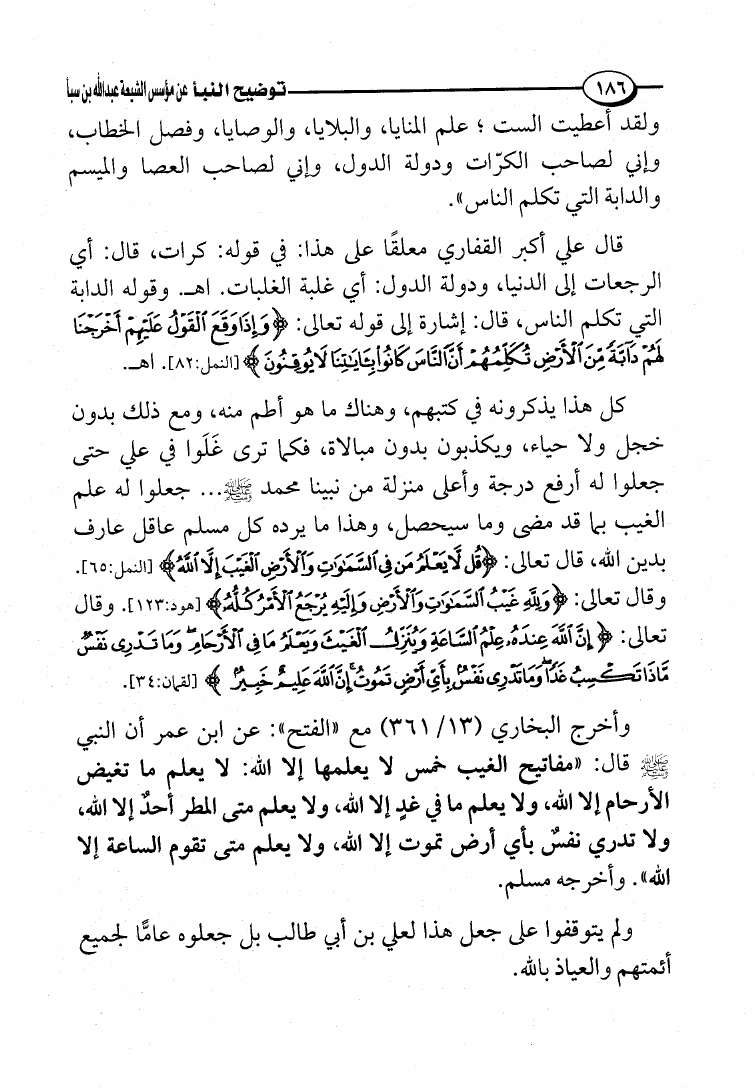 ١٨٦ توضيح النبأ عن مؤسس الشيعة عبدالله بن سبأ
ولقد أعطيت الست ؛ علم المنايا، والبلايا، والوصايا، وفصل الخطاب،
وإني لصاحب الكرّات ودولة الدول، وإني لصاحب العصا والميسم
والدابة التي تكلم الناس».
قال علي أكبر القفاري معلقًا على هذا: في قوله: كرات، قال: أي
الرجعات إلى الدنيا، ودولة الدول: أي غلبة الغلبات. اهـ. وقوله الدابة
التي تكلم الناس، قال: إشارة إلى قوله تعالى: ﴿وَإِذَا وَقَعَ ٱلْقَوْلُ عَلَيْهِمْ أَخْرَجْنَا
لَهُمْ دَآبَّةً مِّنَ ٱلْأَرْضِ تُكَلِّمُهُمْ أَنَّ ٱلنَّاسَ كَانُوا۟ بِـَٔايَـٰتِنَا لَا يُوقِنُونَ﴾ [النمل:٨٢]. اهـ.
كل هذا يذكرونه في كتبهم، وهناك ما هو أطم منه، ومع ذلك بدون
خجل ولا حياء، ويكذبون بدون مبالاة، فكما ترى غَلَوا في علي حتى
جعلوا له أرفع درجة وأعلى منزلة من نبينا محمد ﷺ... جعلوا له علم
الغيب بما قد مضى وما سيحصل، وهذا ما يرده كل مسلم عاقل عارف
بدين الله، قال تعالى: ﴿قُل لَّا يَعْلَمُ مَن فِى ٱلسَّمَـٰوَٰتِ وَٱلْأَرْضِ ٱلْغَيْبَ إِلَّا ٱللَّهُ﴾ [النمل:٦٥].
وقال تعالى: ﴿وَلِلَّهِ غَيْبُ ٱلسَّمَـٰوَٰتِ وَٱلْأَرْضِ وَإِلَيْهِ يُرْجَعُ ٱلْأَمْرُ كُلُّهُۥ﴾ [هود:١٢٣]. وقال
تعالى: ﴿إِنَّ ٱللَّهَ عِندَهُۥ عِلْمُ ٱلسَّاعَةِ وَيُنَزِّلُ ٱلْغَيْثَ وَيَعْلَمُ مَا فِى ٱلْأَرْحَامِ ۖ وَمَا تَدْرِى نَفْسٌ
مَّاذَا تَكْسِبُ غَدًا ۖ وَمَا تَدْرِى نَفْسٌۢ بِأَىِّ أَرْضٍ تَمُوتُ ۚ إِنَّ ٱللَّهَ عَلِيمٌ خَبِيرٌۢ﴾ [لقمان:٣٤].
وأخرج البخاري (١٣/ ٣٦١) مع «الفتح»: عن ابن عمر أن النبي
ﷺ قال: «مفاتيح الغيب خمس لا يعلمها إلا الله: لا يعلم ما تغيض
الأرحام إلا الله، ولا يعلم ما في غدٍ إلا الله، ولا يعلم متى المطر أحدٌ إلا الله،
ولا تدري نفسٌ بأي أرض تموت إلا الله، ولا يعلم متى تقوم الساعة إلا
الله». وأخرجه مسلم.
ولم يتوقفوا على جعل هذا لعلي بن أبي طالب بل جعلوه عامًّا لجميع
أئمتهم والعياذ بالله.